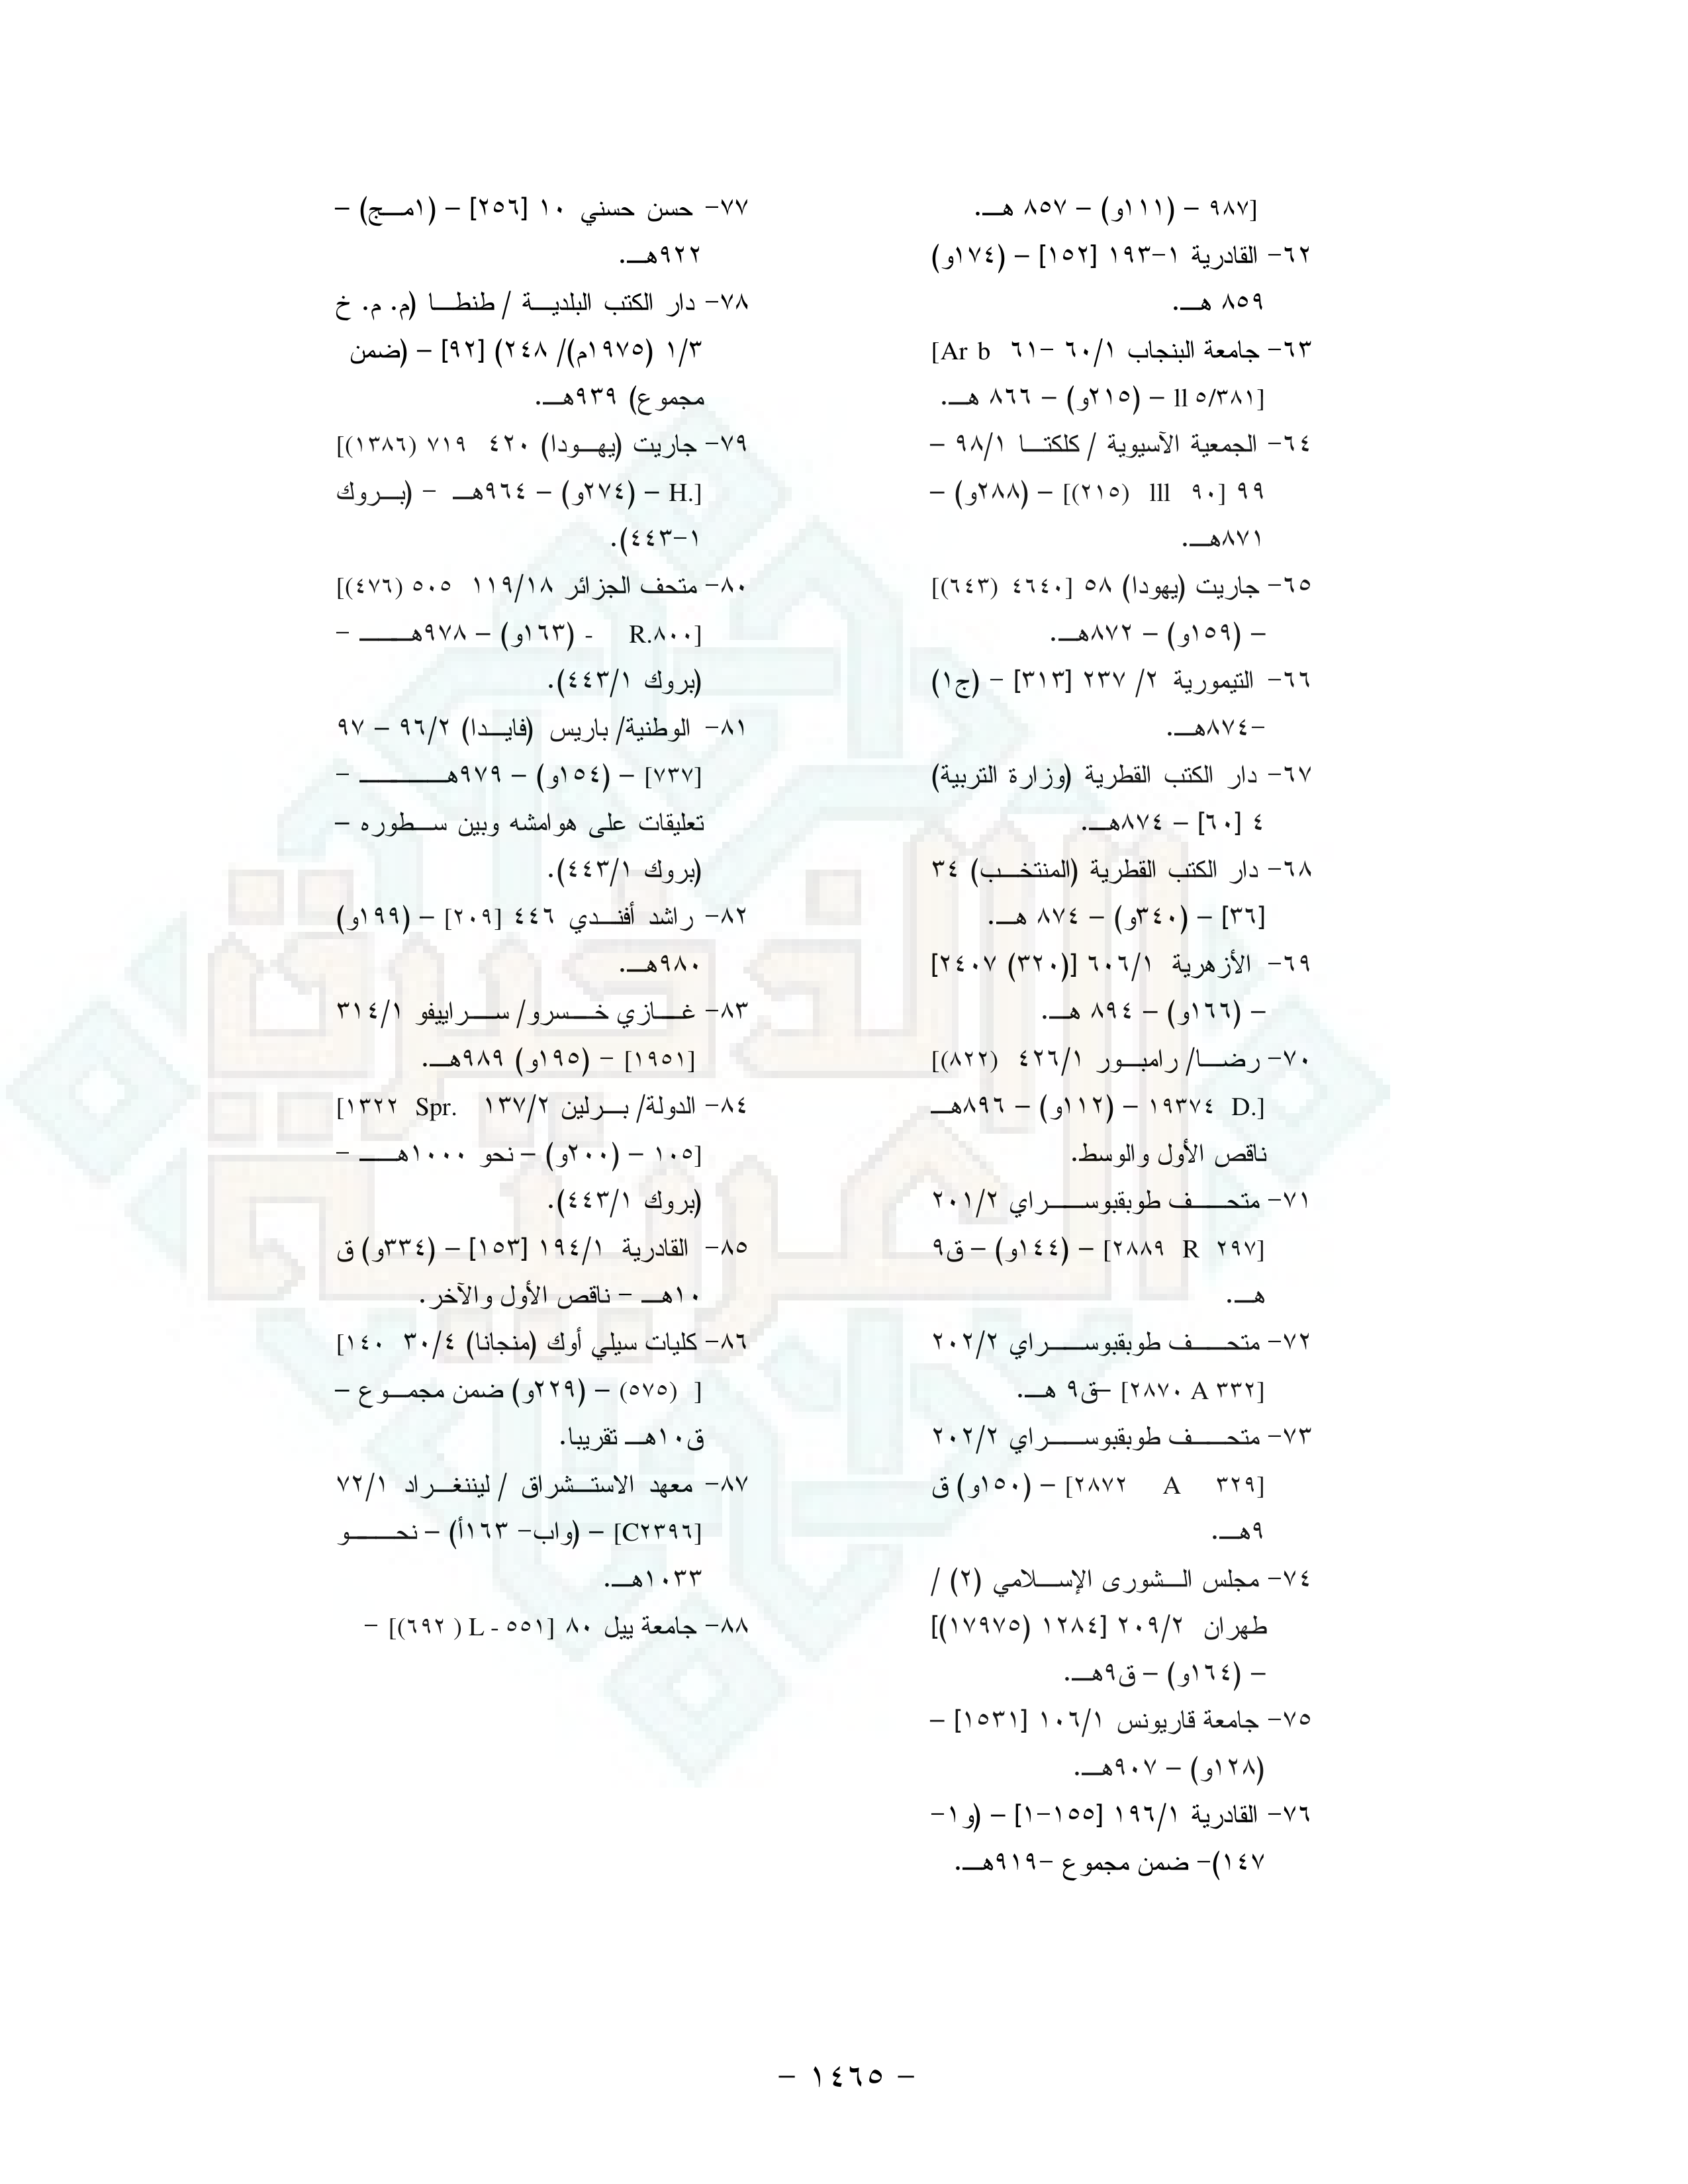 ٩٨٧] – (١١١و) – ٨٥٧ هـ.
٦٢- القادرية ١-١٩٣ [١٥٢] – (١٧٤و)
٨٥٩ هـ.
٦٣- جامعة البنجاب ٦٠/١ -٦١ [Ar b
ll ٥/٣٨١] – (٢١٥و) – ٨٦٦ هـ.
٦٤- الجمعية الآسيوية / كلكتا ٩٨/١ –
٩٩ [٩٠ lll (٢١٥)] – (٢٨٨و) –
٨٧١هـ.
٦٥- جاريت (يهودا) ٥٨ [٤٦٤٠ (٦٤٣)]
– (١٥٩و) – ٨٧٢هـ.
٦٦- التيمورية ٢/ ٢٣٧ [٣١٣] – (ج١)
-٨٧٤هـ.
٦٧- دار الكتب القطرية (وزارة التربية)
٤ [٦٠] – ٨٧٤هـ.
٦٨- دار الكتب القطرية (المنتخب) ٣٤
[٣٦] – (٣٤٠و) – ٨٧٤ هـ.
٦٩- الأزهرية ٦٠٦/١ [(٣٢٠) ٢٤٠٧]
– (١٦٦و) – ٨٩٤ هـ.
٧٠- رضا/ رامبور ٤٢٦/١ (٨٢٢)]
[.D ١٩٣٧٤ – (١١٢و) – ٨٩٦هـ
ناقص الأول والوسط.
٧١- متحف طوبقبوسراي ٢٠١/٢
[٢٩٧ R ٢٨٨٩] – (١٤٤و) – ق٩
هـ.
٧٢- متحف طوبقبوسراي ٢٠٢/٢
[٣٣٢ A ٢٨٧٠] –ق٩ هـ.
٧٣- متحف طوبقبوسراي ٢٠٢/٢
[٣٢٩ A ٢٨٧٢] – (١٥٠و) ق
٩هـ.
٧٤- مجلس الشورى الإسلامي (٢) /
طهران ٢٠٩/٢ [١٢٨٤ (١٧٩٧٥)]
– (١٦٤و) – ق٩هـ.
٧٥- جامعة قاريونس ١٠٦/١ [١٥٣١] –
(١٢٨و) – ٩٠٧هـ.
٧٦- القادرية ١٩٦/١ [١٥٥-١] – (و١-
١٤٧)- ضمن مجموع -٩١٩هـ.
٧٧- حسن حسني ١٠ [٢٥٦] – (١مج) –
٩٢٢هـ.
٧٨- دار الكتب البلدية / طنطا (م. م. خ
١/٣ (١٩٧٥م)/ ٢٤٨) [٩٢] – (ضمن
مجموع) ٩٣٩هـ.
٧٩- جاريت (يهودا) ٤٢٠ ٧١٩ (١٣٨٦)]
[.H – (٢٧٤و) – ٩٦٤هـ - (بروك
١-٤٤٣).
٨٠- متحف الجزائر ١١٩/١٨ ٥٠٥ (٤٧٦)]
[R.٨٠٠ - (١٦٣و) – ٩٧٨هـ -
(بروك ٤٤٣/١).
٨١- الوطنية/ باريس (فايدا) ٩٦/٢ – ٩٧
[٧٣٧] – (١٥٤و) – ٩٧٩هـ -
تعليقات على هوامشه وبين سطوره –
(بروك ٤٤٣/١).
٨٢- راشد أفندي ٤٤٦ [٢٠٩] – (١٩٩و)
٩٨٠هـ.
٨٣- غازي خسرو/ سراييفو ٣١٤/١
[١٩٥١] – (١٩٥و) ٩٨٩هـ.
٨٤- الدولة/ برلين ١٣٧/٢ .Spr ١٣٢٢]
[١٠٥ – (٢٠٠و) – نحو ١٠٠٠هـ –
(بروك ٤٤٣/١).
٨٥- القادرية ١٩٤/١ [١٥٣] – (٣٣٤و) ق
١٠هـ – ناقص الأول والآخر.
٨٦- كليات سيلي أوك (منجانا) ٣٠/٤ ١٤٠]
[ (٥٧٥) – (٢٢٩و) ضمن مجموع –
ق١٠هـ تقريبا.
٨٧- معهد الاستشراق / ليننغراد ٧٢/١
[C٢٣٩٦] – (واب- ١٦٣أ) – نحو
١٠٣٣هـ.
٨٨- جامعة ييل ٨٠ [L - ٥٥١ ( ٦٩٢)] –
– ١٤٦٥ –